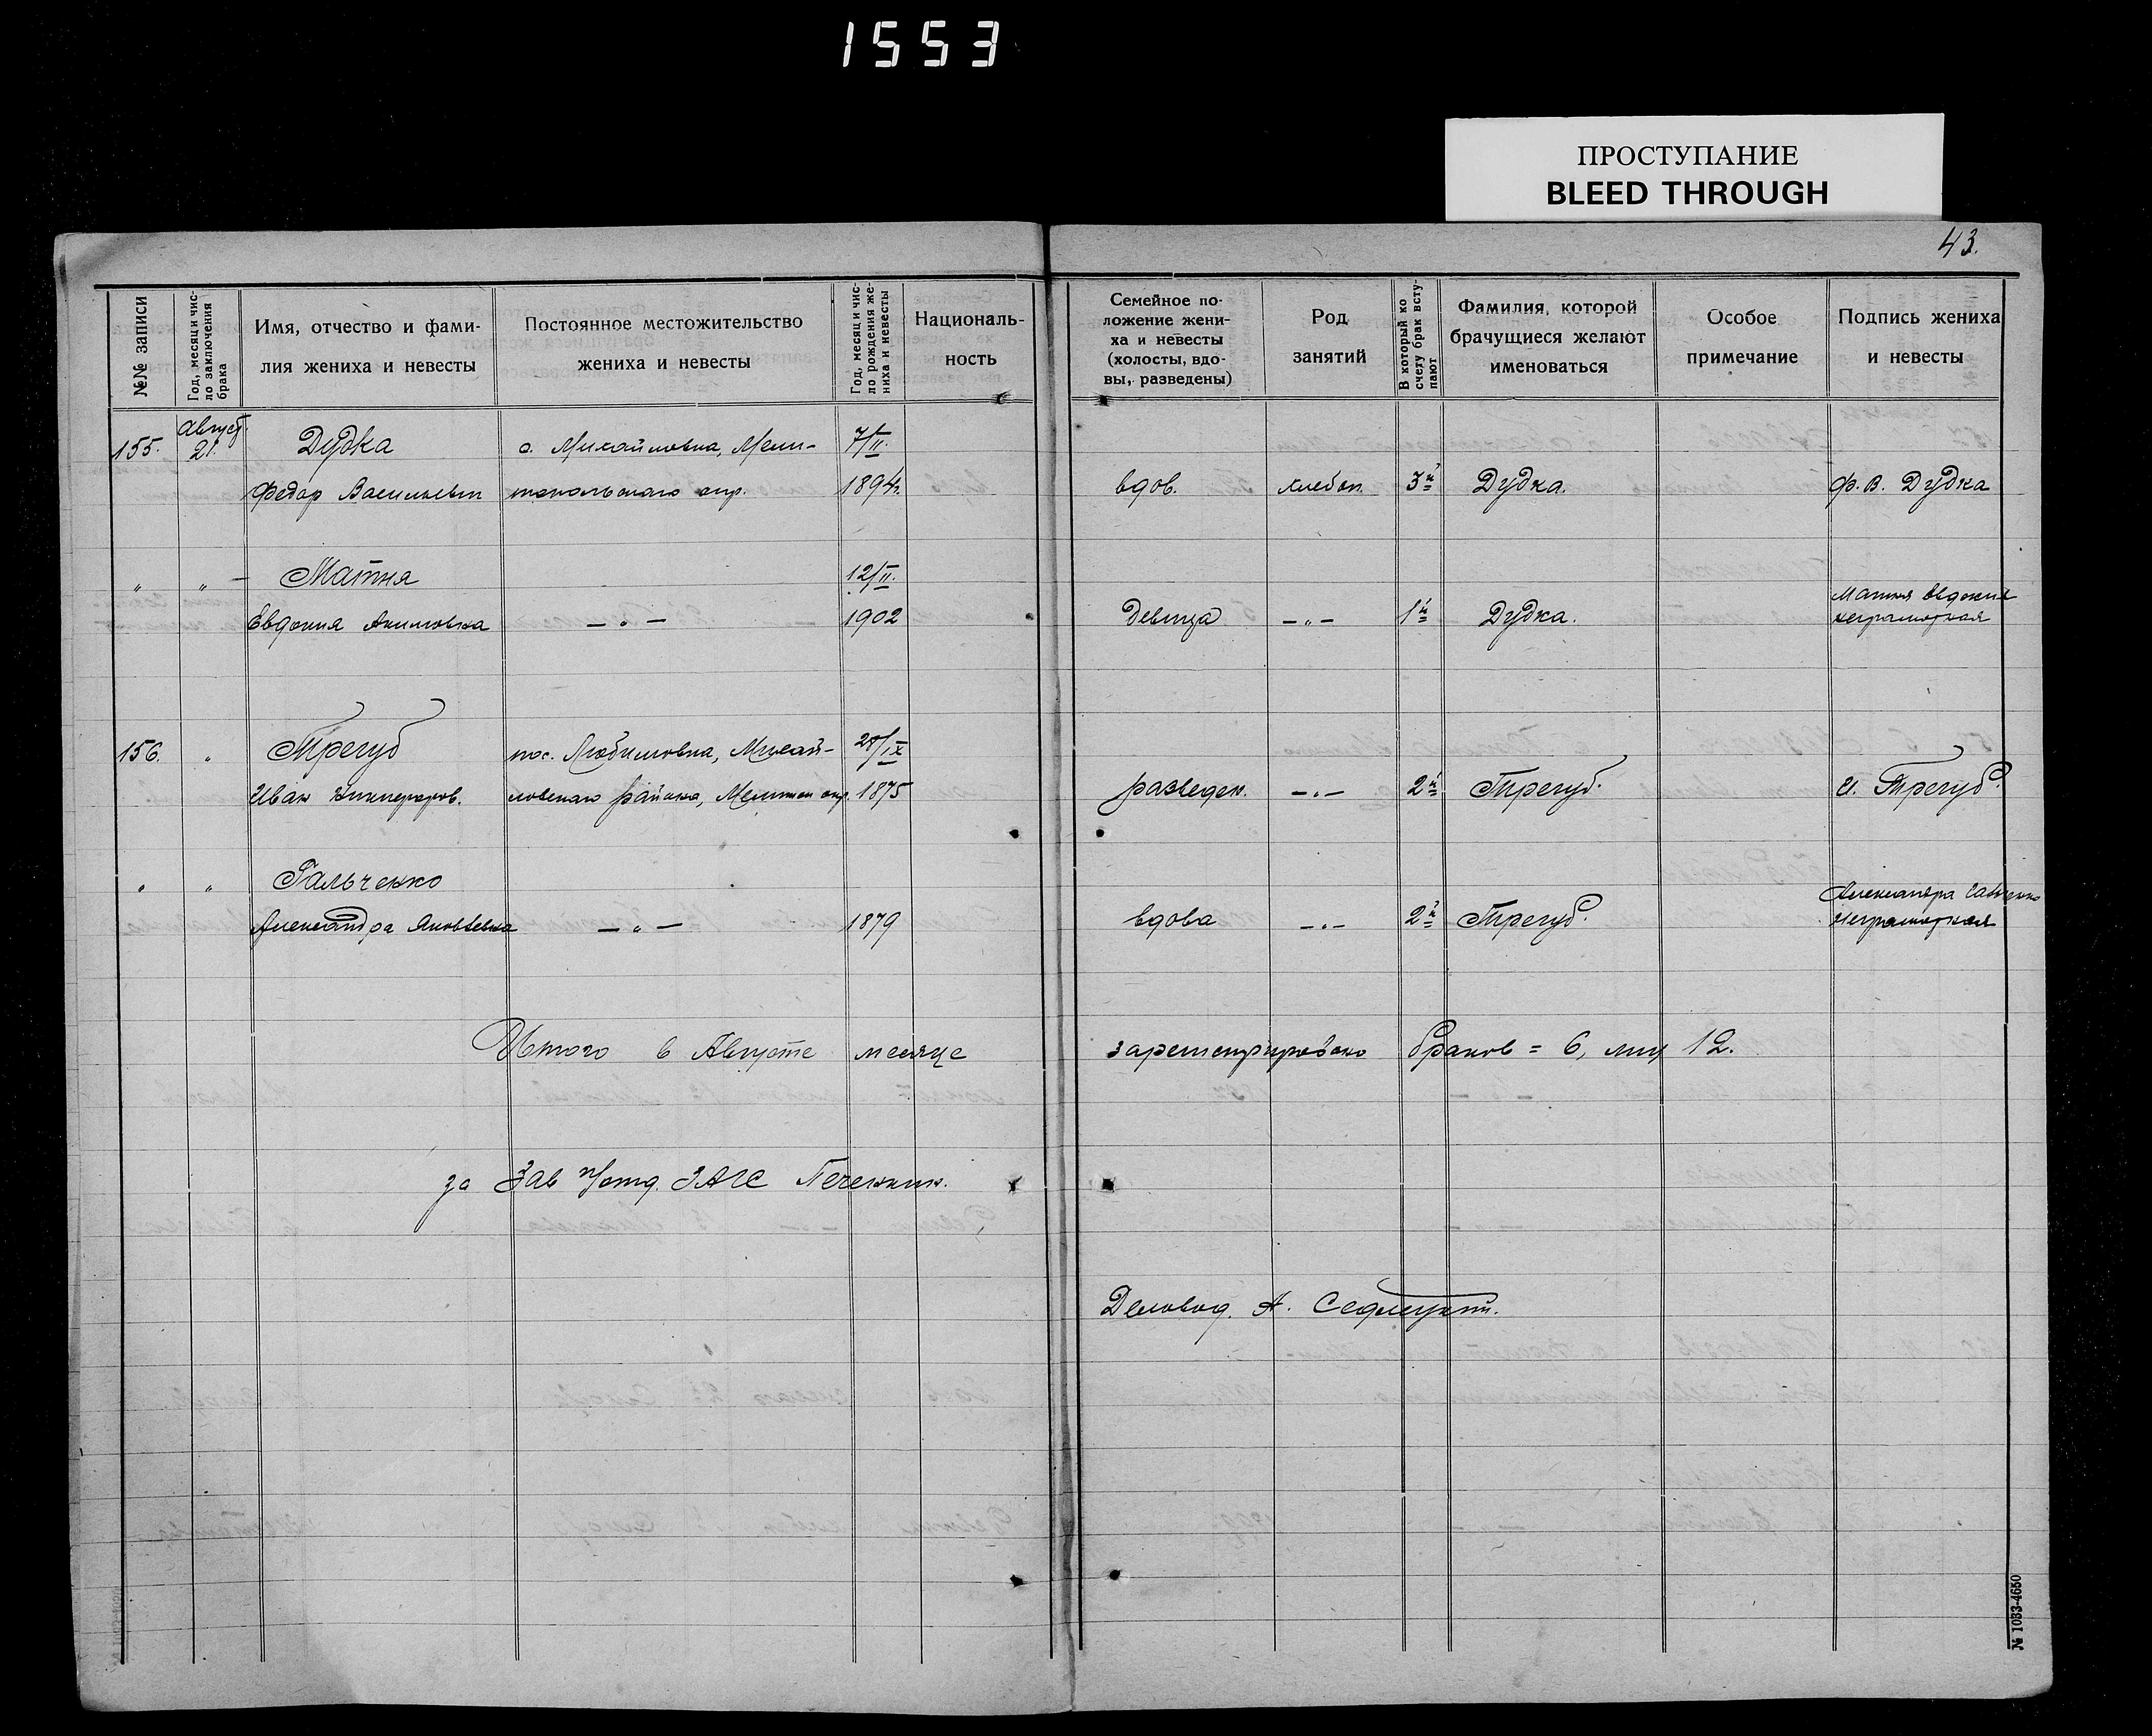 1553
ПРОСТУПАНИЕ
BLEED THROUGH
43.
№№ записи
Год, месяц и чис-
ло заключения
брака
Имя, отчество и фами-
лия жениха и невесты
Постоянное местожительство
жениха и невесты
Год, месяц и чис-
ло рождения же-
ниха и невесты
Националь-
ность
Семейное по-
ложение жени-
ха и невесты
(холосты, вдо-
вы, разведены)
Род
занятий
В который ко
счету брак всту-
пают
Фамилия, которой
брачущиеся желают
именоваться
Особое
примечание
Подпись жениха
и невесты
155. август. 21. Дудка с. Михайловка, Мели- 7/II.
Федор Васильевич топольского окр. 1894г. вдов. хлебоп. 3й Дудка. Ф. В. Дудка
" " — Матня 12/II. Матня Евдокия
Евдокия Акимовна — " — 1902 девица — " — 1й Дудка. неграмотная
156. " Трегуб пос. Любимовка, Михай- /IX
Иван ловского района, Мелитоп окр. 1875 разведен. — " — 2й Трегуб. И. Трегуб.
" " Гальченко Александра
Александра Яковлевна — " — 1879 вдова — " — 2й Трегуб. неграмотная
Итого в Августе месяце зарегистрировано браков = 6, лиц 12.
за Зав ЗАГС
Деловод. А. Седлецкий.
№ 1033-4650